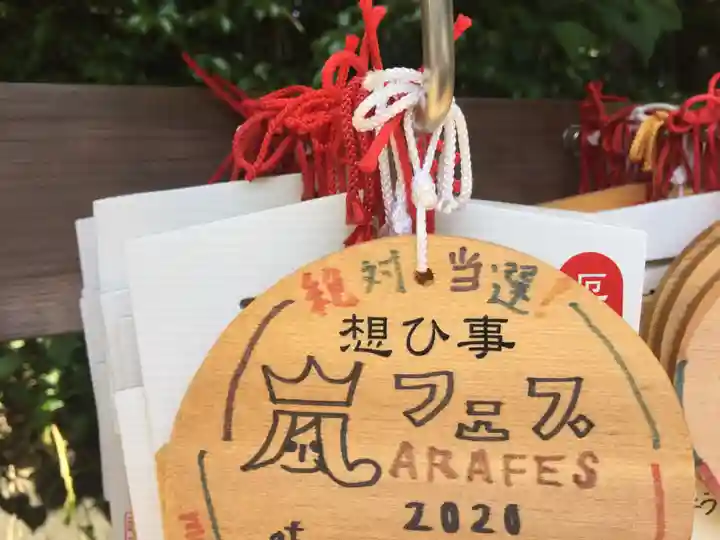 絶対当選!
想ひ事
嵐フェス
ARAFES
2020
at
厄
う